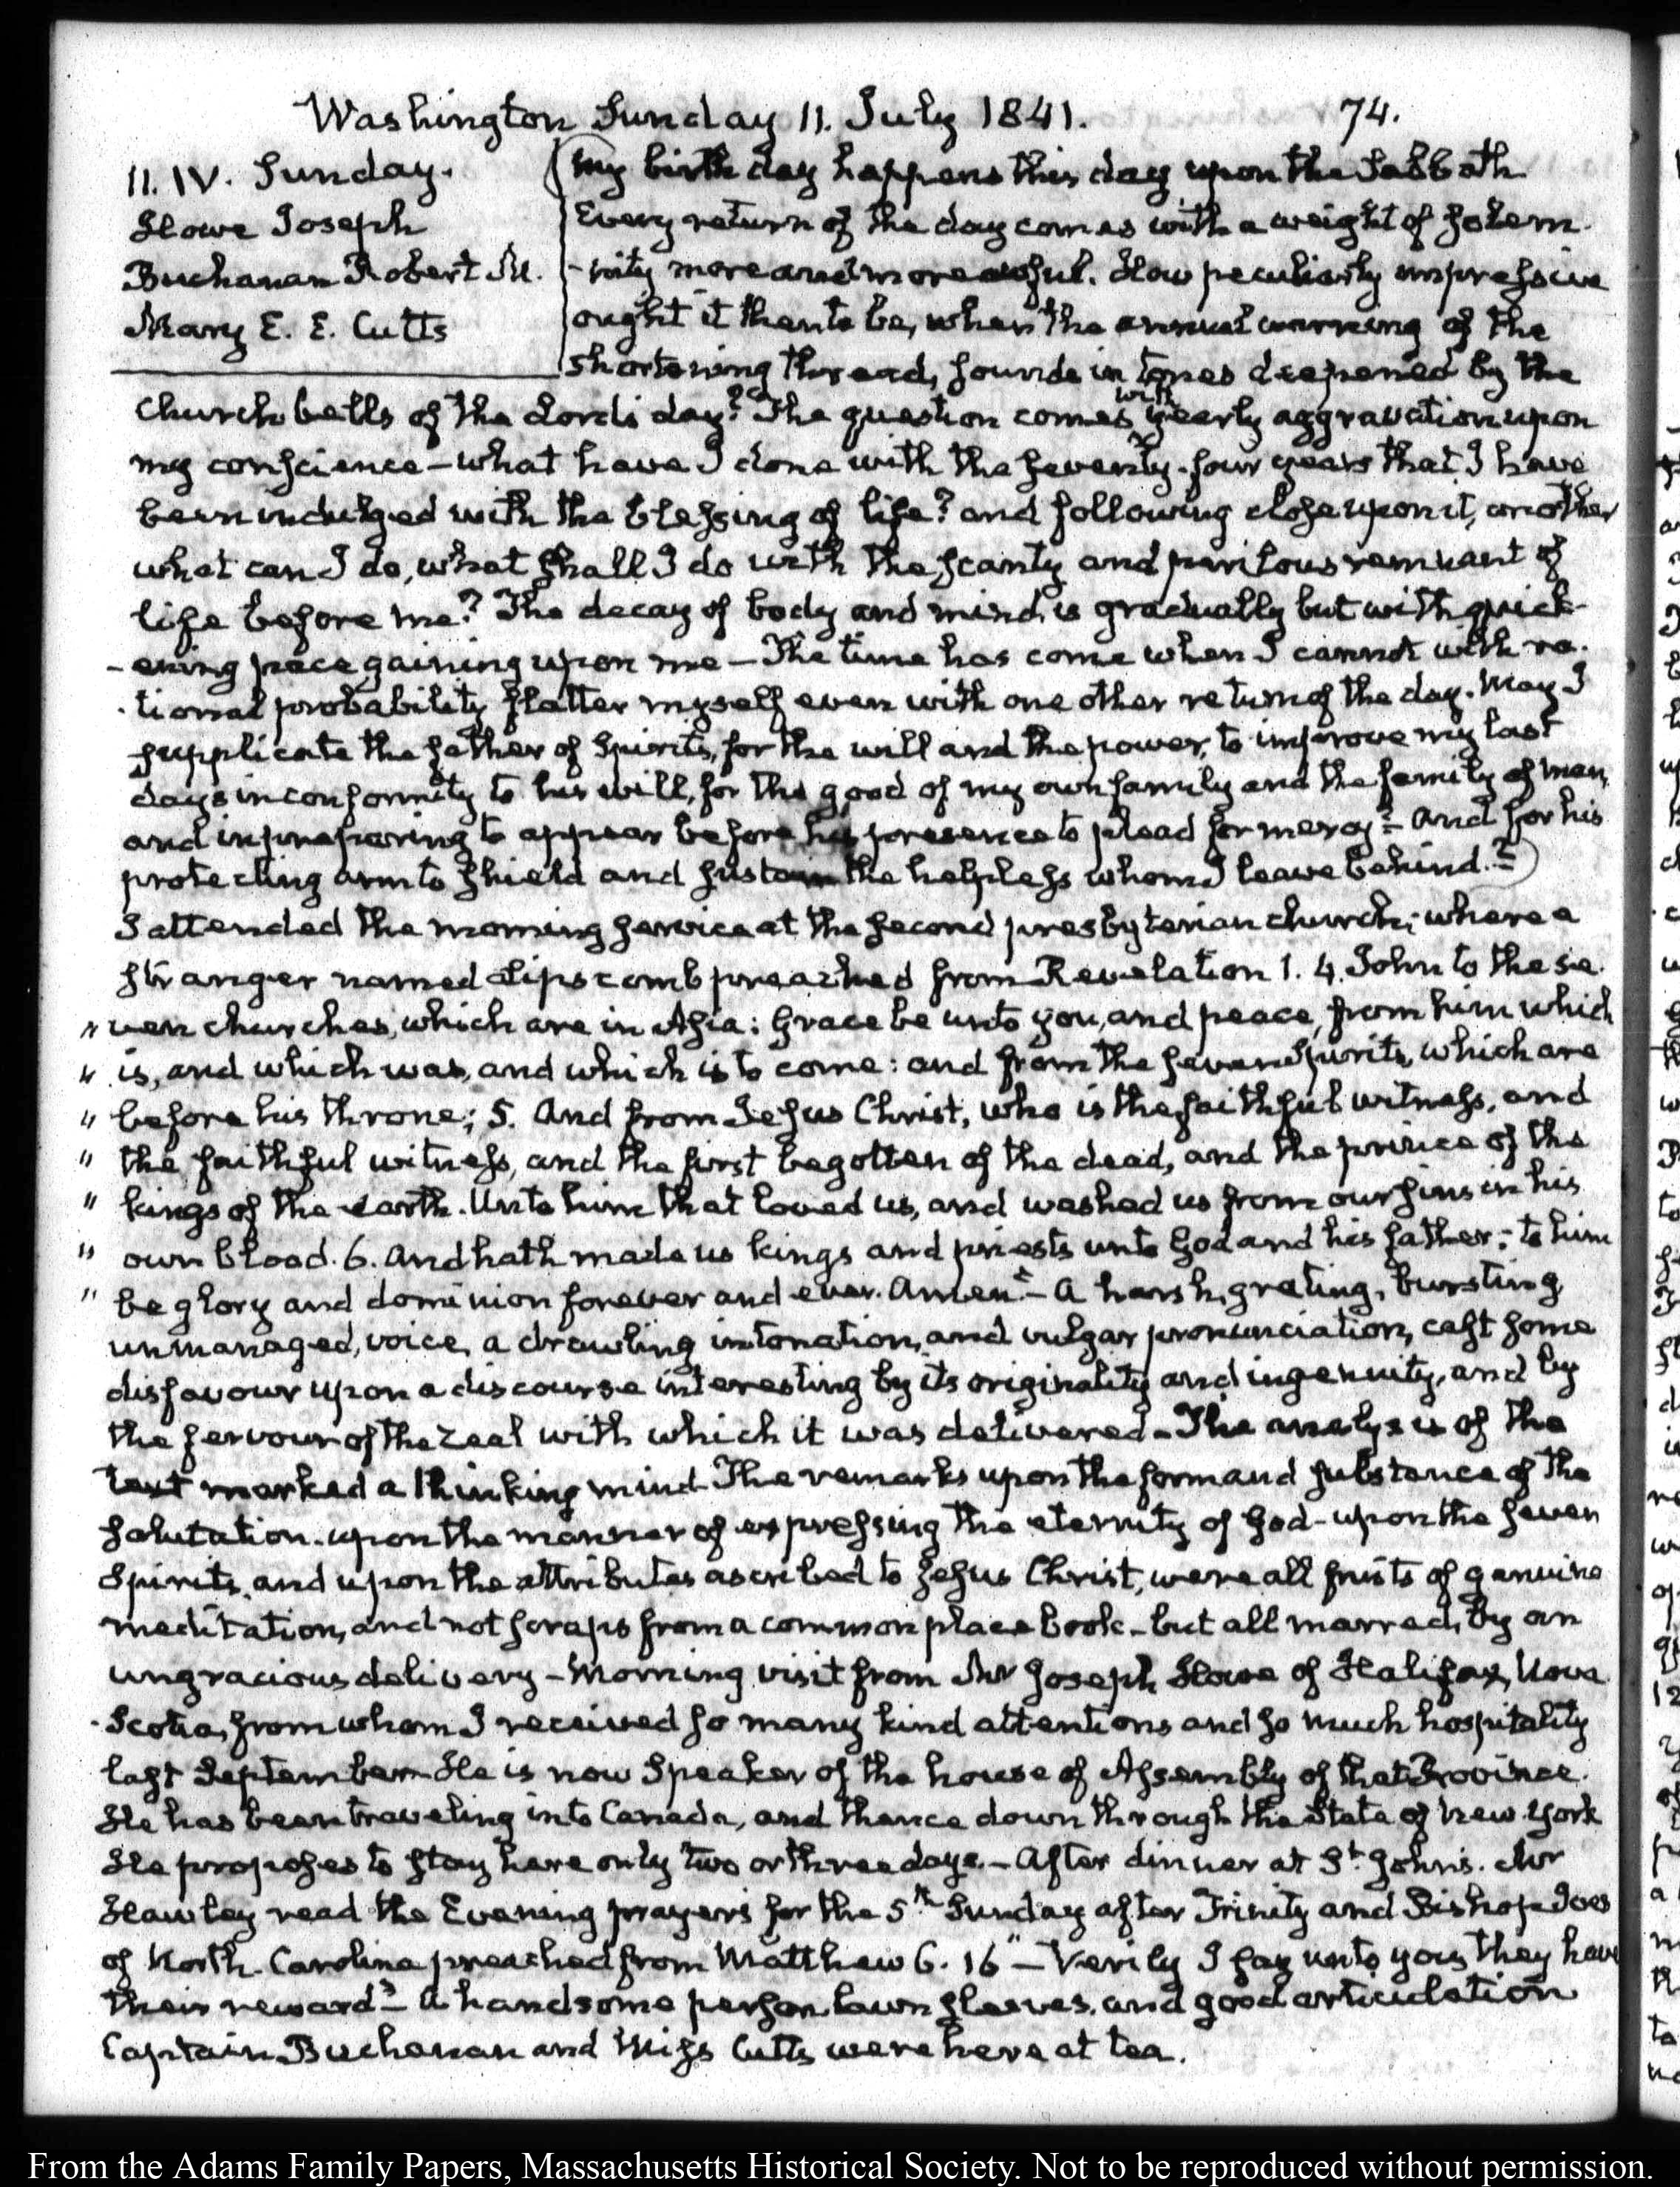 Washington Sunday 11. July 1841. 74.
11. IV. Sunday.
Howe Joseph
Buchanan Robert M.
Mary E. E. Cutts
(My birth day happens this day upon the Sabbath
Every return of the day comes with a weight of solem-
-nity more and more awful. How peculiarly impressive
ought it then to be, when the annual warning of the
shortening thread, sounds in tones deepened by the
church bells of the Lord's day? The question comes with yearly aggravation upon
my conscience—what have I done with the seventy-four years that I have
been indulged with the blessing of life? and following close upon it, another
what can I do, what shall I do with the scanty and perilous remnant of
life before me? The decay of body and mind, is gradually but with quick-
-ening pace gaining upon me—The time has come when I cannot with ra-
-tional probability flatter myself even with one other return of the day. May I
supplicate the father of Spirits, for the will and the power, to improve my last
days in conformity to his will, for the good of my own family and the family of man,
and in preparing to appear before his presence to plead for mercy?—And for his
protecting arm to shield and sustain the helpless whom I leave behind.?—)
I attended the morning service at the second presbyterian church; where a
stranger named Lipscomb preached from Revelation 1. 4. John to the se-
" ven churches, which are in Asia: Grace be unto you, and peace, from him which
" is, and which was, and which is to come: and from the seven Spirits, which are
" before his throne; 5. And from Jesus Christ, who is the faithful witness, and
" the faithful witness, and the first begotten of the dead, and the prince of the
" kings of the earth. Unto him that loved us, and washed us from our sins in his
" own blood. 6. And hath made us kings and priests unto God and his father; to him
" be glory and dominion forever and ever. Amen"—A harsh, grating, bursting,
unmanaged, voice, a drawling intonation, and vulgar pronunciation, cast some
disfavour upon a discourse interesting by its originality and ingenuity, and by
the fervour of the zeal with which it was delivered—The analysis of the
text marked a thinking mind—The remarks upon the form and substance of the
salutation—upon the manner of expressing the eternity of God—upon the seven
Spirits, and upon the attributes ascribed to Jesus Christ, were all fruits of genuine
meditation, and not scraps from a common place book—but all marred, by an
ungracious delivery—Morning visit from Mr Joseph Howe of Halifax, Nova
-Scotia, from whom I received so many kind attentions and so much hospitality
last September—He is now Speaker of the house of Assembly of that Province.
He has been traveling into Canada, and thence down through the State of New-York
He proposes to stay here only two or three days.—After dinner at St. John's. Mr
Hawley read the Evening prayers for the 5th Sunday after Trinity and Bishop Ives
of North-Carolina preached from Matthew 6. 16 "—Verily I say unto you, they have
their reward"—A handsome person, lawn sleeves, and good articulation
Captain Buchanan and Miss Cutts were here at tea.
From the Adams Family Papers, Massachusetts Historical Society. Not to be reproduced without permission.